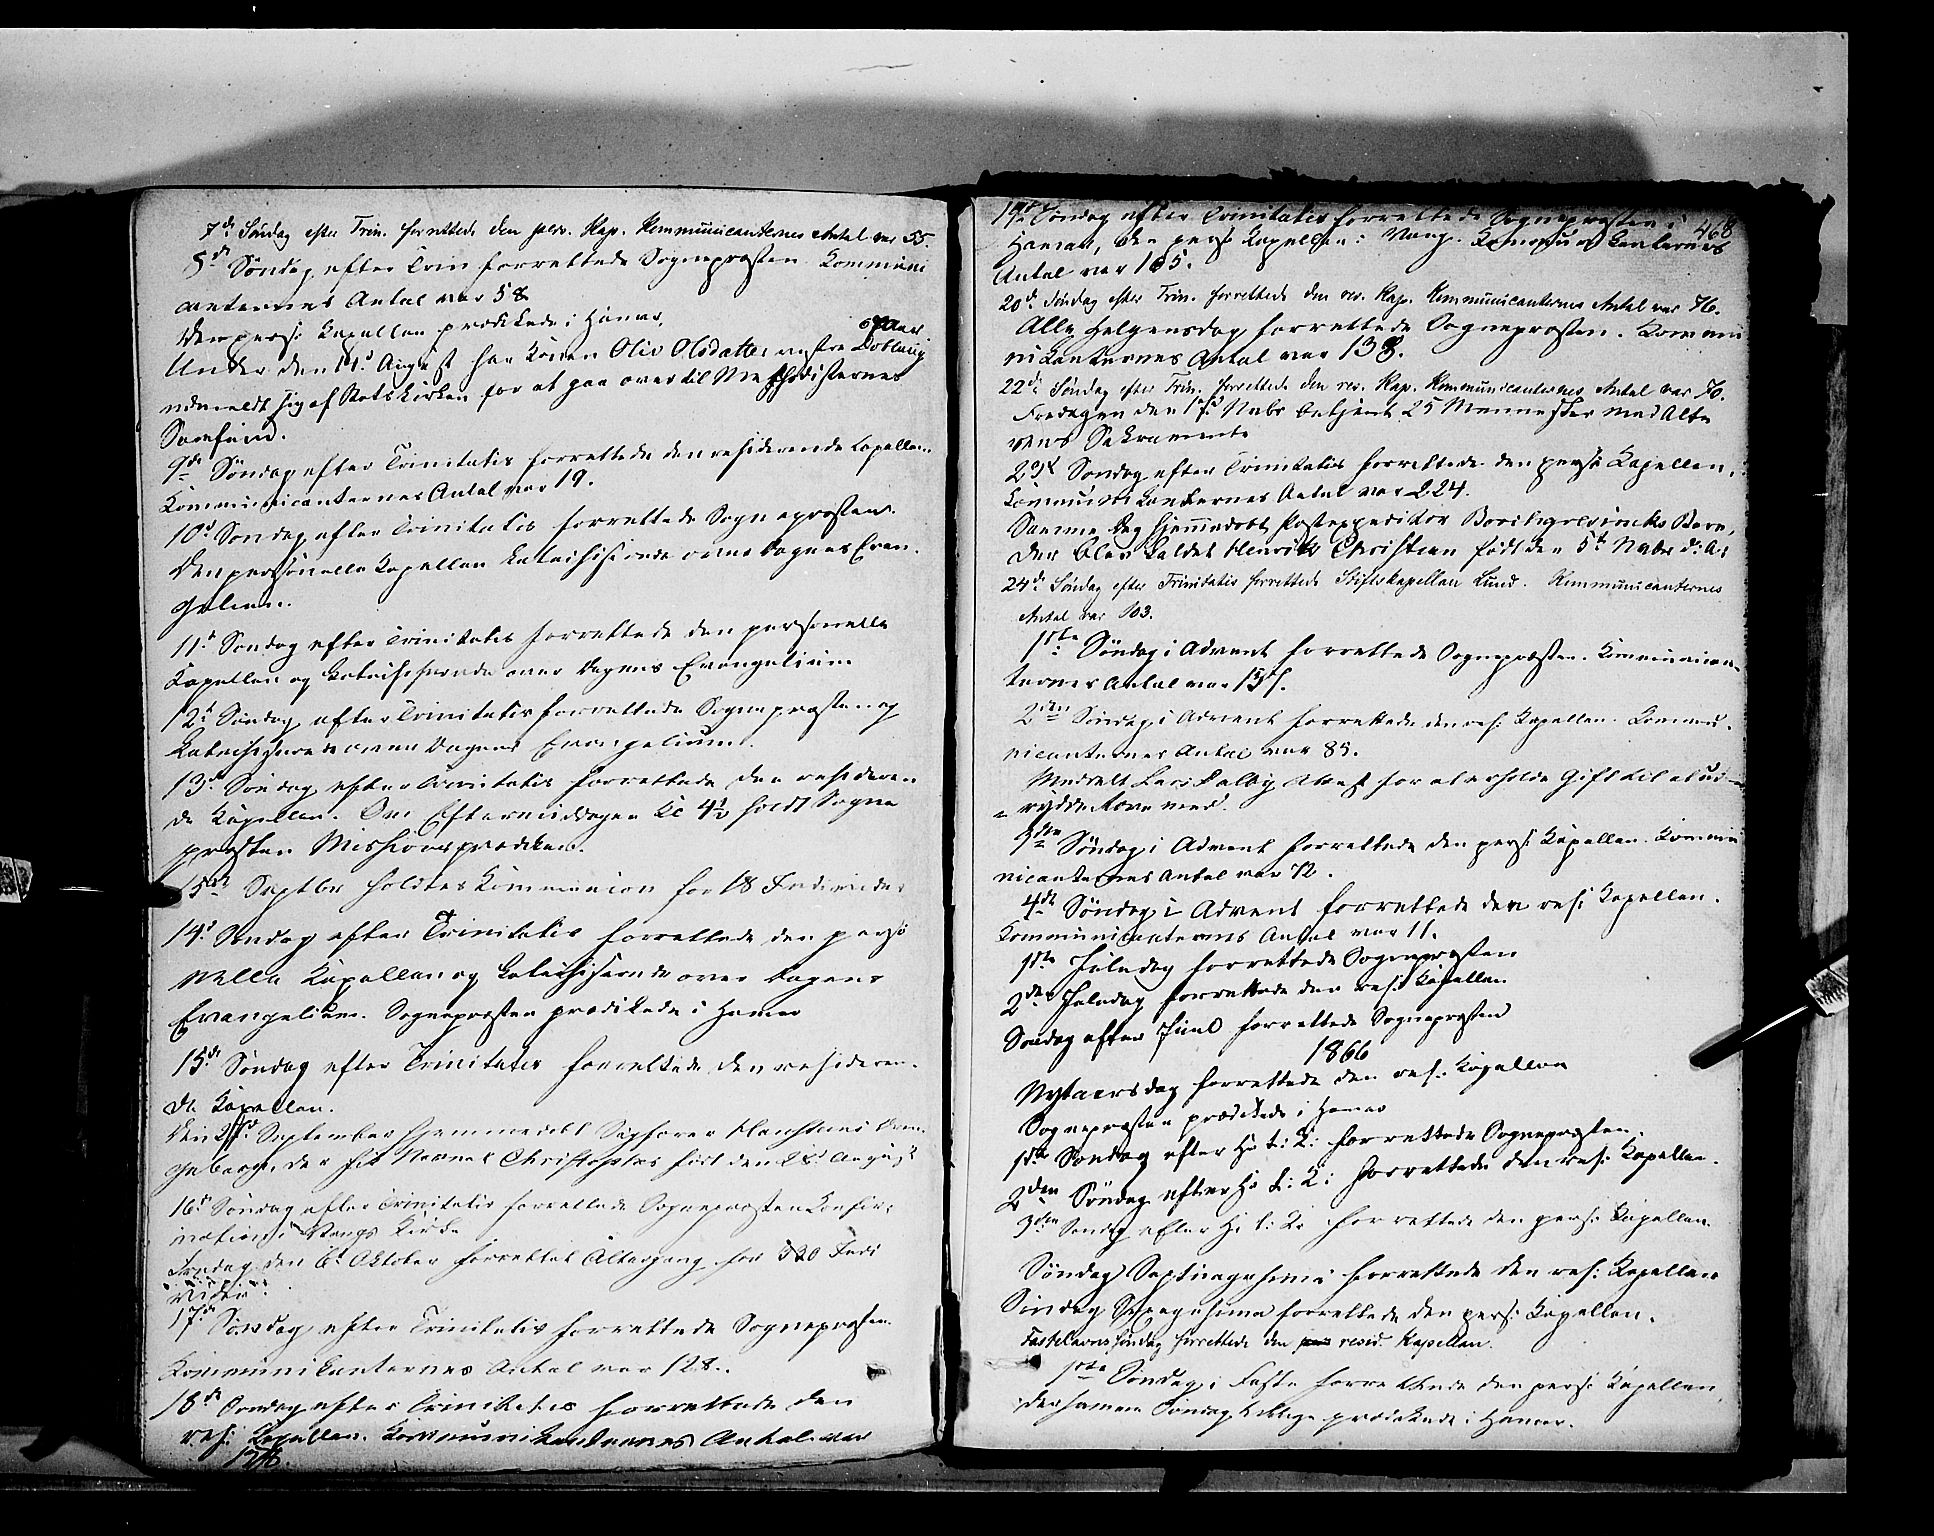 7de Søndag efter Trin. forrettede den pers. Kap. Kommunicanternes Antal var 55.
8de Søndag efter Trin forrettede Sognepræsten. Kommuni
canternes Antal var 58
Den pers: Kapellan prædikede i Hamar.
Under den 14d August har Konen Oliv Olsdatter vestre Dobloug
udmeldt sig af Statskirken for at gaa over til Methodisternes
Samfund.
9de Søndag efter Trinitatis forrettede den residerende Capellan.
Kommunicanternes Antal var 19.
10d Søndag efter Trinitatis forrettede Sognepræsten.
Den personelle Kapellan katechiserede over Dagens Evan-
gelium.
11d Søndag efter Trinitatis forrettede den personelle
Kapellan og katechiserede over Dagens Evangelium
12d Søndag efter Trinitatis forrettede Sognepræsten og
katechiserede over Dagens Evangelium.
13d Søndag efter Trinitatis forrettede den resideren-
de Kapellan. Om Eftermiddagen Kl 4½ holdt Sogne
præsten Missionsprædiken.
15de Septbr holdtes Kommunion for 18 Individer
14d Søndag efter Trinitatis forrettede den perso
nelle Kapellan og katechiserede over Dagens
Evangelium. Sognepræsten prædikede i Hamar
15de Søndag efter Trinitatis forrettede den resideren-
de Kapellan.
Den September hjemmedøbt
der fik Navnet født den 28d August
16d Søndag efter Trinitatis forrettede Sognepræsten Confir-
mation i Vangs Kirke
den 6d Oktober forrettet Altergang for Indi
vider.
17de Søndag efter Trinitatis forrettede Sognepræsten.
Kommunikanternes Antal var 128.
18de Søndag efter Trinitatis forrettede den
res: Kapellan. Kommunikanternes Antal var
468
19de Søndag efter Trinitatis forrettede Sognepræsten i
Hamar, den pers: Kapellan i Vang. Kommunikanternes
Antal var 165.
20de Søndag efter Trin. forrettede den res. Kap. Kommunicanternes Antal var 76.
Alle Helgensdag forrettede Sognepræsten. Kommu
nikanternes Antal var 138.
22de Søndag efter Trin. forrettede den res. Kap. Kommunicanternes Antal var 76.
Fredagen den 17d Novbr betjent 25 Mennesker med Alte
rens Sakramente
23d Søndag efter Trinitatis forrettede den pers: Kapellan,
Kommunikanternes Antal var 224.
Samme Dag hjemmedøbt Postexpeditør Borchgrevincks Barn,
der blev kaldet Henrik Christian født den 5te Novbr d: A:
24de Søndag efter Trinitatis forrettede Stiftskapellan Lund. Kommunicanternes
Antal var 103.
1ste Søndag i Advent forrettede Sognepræsten. Kommunican-
ternes Antal var
2den Søndag i Advent forrettede den res: Kapellan. Commu-
nicanternes Antal var 85.
Meddelt Lars Dalby Attest for at erholde Gift til at ud-
rydde Rove med.
3den Søndag i Advent forrettede den pers: Kapellan. Kommu
nicanternes Antal var 72.
4de Søndag i Advent forrettede den res: Kapellan.
Kommunicanternes Antal var 11.
1ste Juledag forrettede Sognepræsten
2den Juledag forrettede den res: Kapellan.
Søndag efter Juul forrettede Sognepræsten
1866
Nytaarsdag forrettede den res: Kapellan
Sognepræsten prædikede i Hamar
1ste Søndag efter H: t: K: forrettede Sognepræsten.
2den Søndag efter H: t: K: forrettede den res: Kapellan.
3den Søndag efter H: t: K: forrettede den pers: Kapellan.
Søndag Septuagesima forrettede den res: Kapellan
Søndag Sexagesima forrettede den pers: Kapellan.
Fastelavnssøndag forrettede den resid. Kapellan.
1ste Søndag i Faste forrettede den pers: Kapellan,
der samme Søndag tillige prædikede i Hamar.